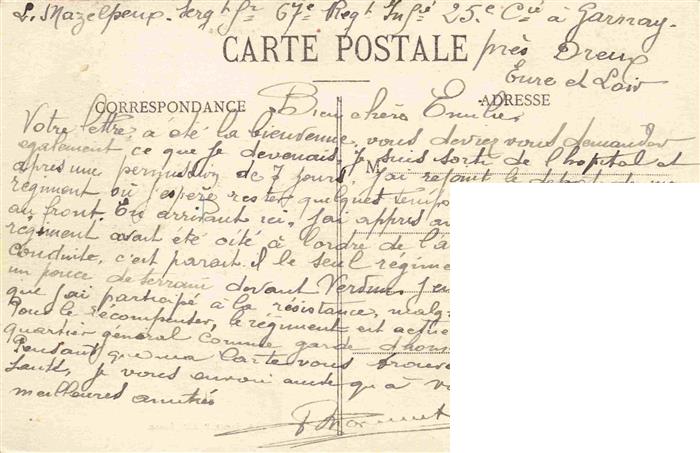 L. Mazelpeux Sergt fr 67e Regt Infie 25e Cie à Garnay
CARTE POSTALE près Dreux
Eure et Loir
CORRESPONDANCE ADRESSE
Bien chère Emilie
Votre lettre a été la bienvenue, vous devrez vous demander
également ce que je devenais. Je suis sorti de l'hopital et
M
après une permission de 7 jours, j'ai rejoint le depot de
régiment où j'espère rester quelques
au front. En arrivant ici, j'ai appris
régiment avait été cité à l'ordre de l'a
conduite, c'est parait il le seul régime
un pouce de terrain devant Verdun. J'en
que j'ai participé à la résistance, malg
Pour le récompenser, le régiment est actue
quartier général comme garde d'hon
Pendant que ma carte vous trouve
santé, je vous envoi ainsi qu'à v
meilleures amitiés